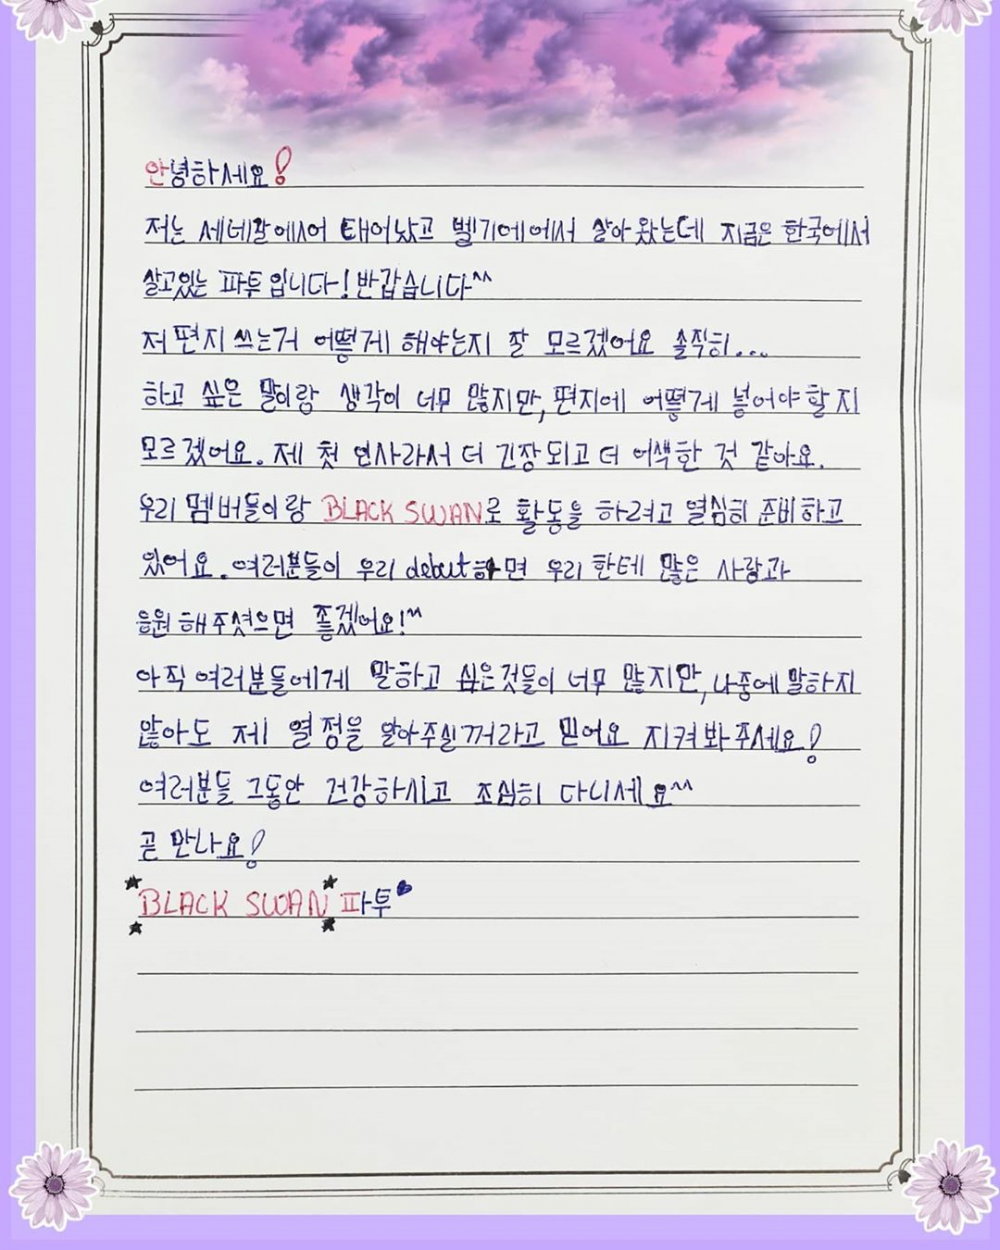 안녕하세요!
저는 세네갈에서 태어났고 벨기에에서 살아왔는데 지금은 한국에서
살고있는 파투입니다! 반갑습니다^^
저 편지 쓰는거 어떻게 해야는지 잘 모르겠어요 솔직히...
하고 싶은 말이랑 생각이 너무 많지만, 편지에 어떻게 넣어야할지
모르겠어요. 제 첫 인사라서 더 긴장되고 더 어색한 것 같아요.
우리 멤버들이랑 BLACK SWAN로 활동을 하려고 열심히 준비하고
있어요. 여러분들이 우리 debut하면 우리 한테 많은 사랑과
응원해주셨으면 좋겠어요!^^
아직 여러분들에게 말하고 싶은것들이 너무 많지만, 나중에 말하지
않아도 제 열정을 알아주실꺼라고 믿어요 지켜봐주세요!
여러분들 그동안 건강하시고 조심히 다니세요^^
곧 만나요!
BLACK SWAN 파투